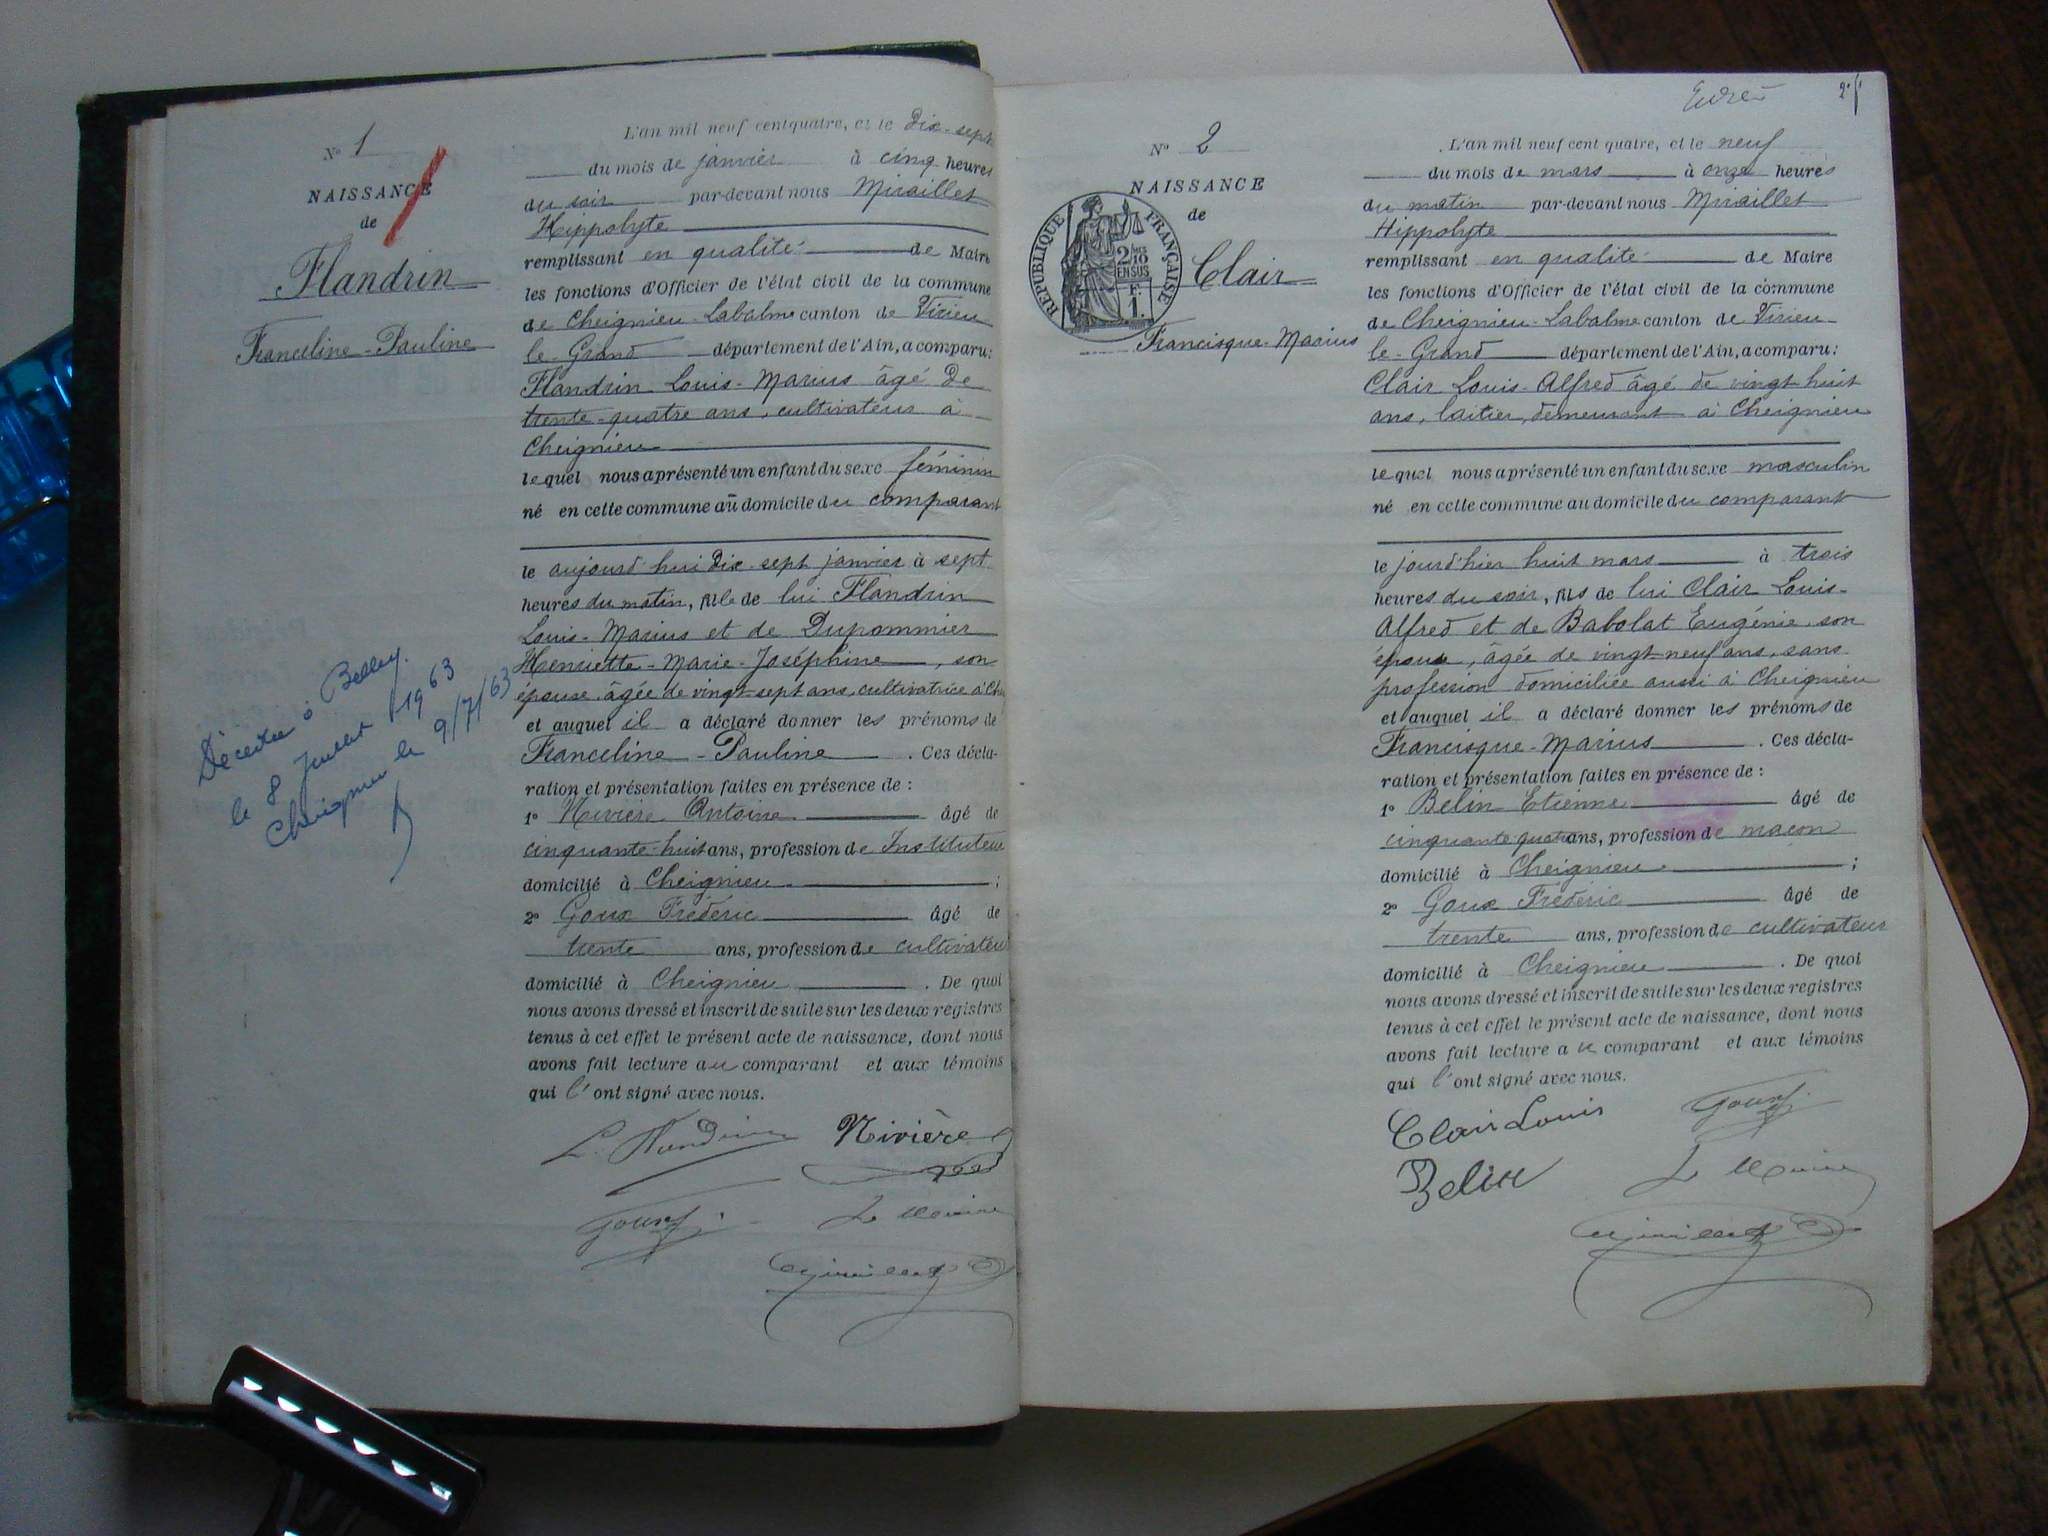 Nº 1
NAISSANCE
de
Flandrin
Franceline-Pauline
Décédée à Belley
le 8 Juillet 1963
Cheignieu le 9/7/63
L'an mil neuf cent quatre, et le dix-sept
du mois de janvier à cinq heures
du soir par-devant nous Miraillet
Hippolyte
remplissant en qualité de Maire
les fonctions d'Officier de l'état civil de la commune
de Cheignieu-Labalme canton de Virieu
le-Grand département de l'Ain, a comparu:
Flandrin Louis-Marius âgé de
trente-quatre ans, cultivateur à
Cheignieu
lequel nous a présenté un enfant du sexe féminin
né en cette commune au domicile du comparant
le aujourd'hui dix-sept janvier à sept
heures du matin, fille de lui Flandrin
Louis-Marius et de Dupommier
Henriette-Marie-Joséphine, son
épouse, âgée de vingt-sept ans, cultivatrice à Che
et auquel il a déclaré donner les prénoms de
Franceline-Pauline. Ces décla-
ration et présentation faites en présence de :
1º Nivière Antoine âgé de
cinquante-huit ans, profession de Instituteur
domicilié à Cheignieu ;
2º Goux Frédéric âgé de
trente ans, profession de cultivateur
domicilié à Cheignieu. De quoi
nous avons dressé et inscrit de suite sur les deux registres
tenus à cet effet le présent acte de naissance, dont nous
avons fait lecture au comparant et aux témoins
qui l'ont signé avec nous.
L. Flandrin Nivière
Goux f. Le Maire
Miraillet
2º f'
Nº 2
NAISSANCE
de
RÉPUBLIQUE FRANÇAISE
2/10 EN SUS
F. 1.
Clair
Francisque-Marius
L'an mil neuf cent quatre, et le neuf
du mois de mars à onze heures
du matin par-devant nous Miraillet
Hippolyte
remplissant en qualité de Maire
les fonctions d'Officier de l'état civil de la commune
de Cheignieu-Labalme canton de Virieu
le-Grand département de l'Ain, a comparu:
Clair Louis-Alfred âgé de vingt huit
ans, laitier, demeurant à Cheignieu
lequel nous a présenté un enfant du sexe masculin
né en cette commune au domicile du comparant
le jourd'hier huit mars à trois
heures du soir, fils de lui Clair Louis-
Alfred et de Babolat Eugénie, son
épouse, âgée de vingt-neuf ans, sans
profession domiciliée aussi à Cheignieu
et auquel il a déclaré donner les prénoms de
Francisque-Marius. Ces décla-
ration et présentation faites en présence de :
1º Belin Etienne âgé de
cinquante-quatre ans, profession de maçon
domicilié à Cheignieu ;
2º Goux Frédéric âgé de
trente ans, profession de cultivateur
domicilié à Cheignieu. De quoi
nous avons dressé et inscrit de suite sur les deux registres
tenus à cet effet le présent acte de naissance, dont nous
avons fait lecture au comparant et aux témoins
qui l'ont signé avec nous.
Clair Louis Goux f.
Belin Le Maire
Miraillet